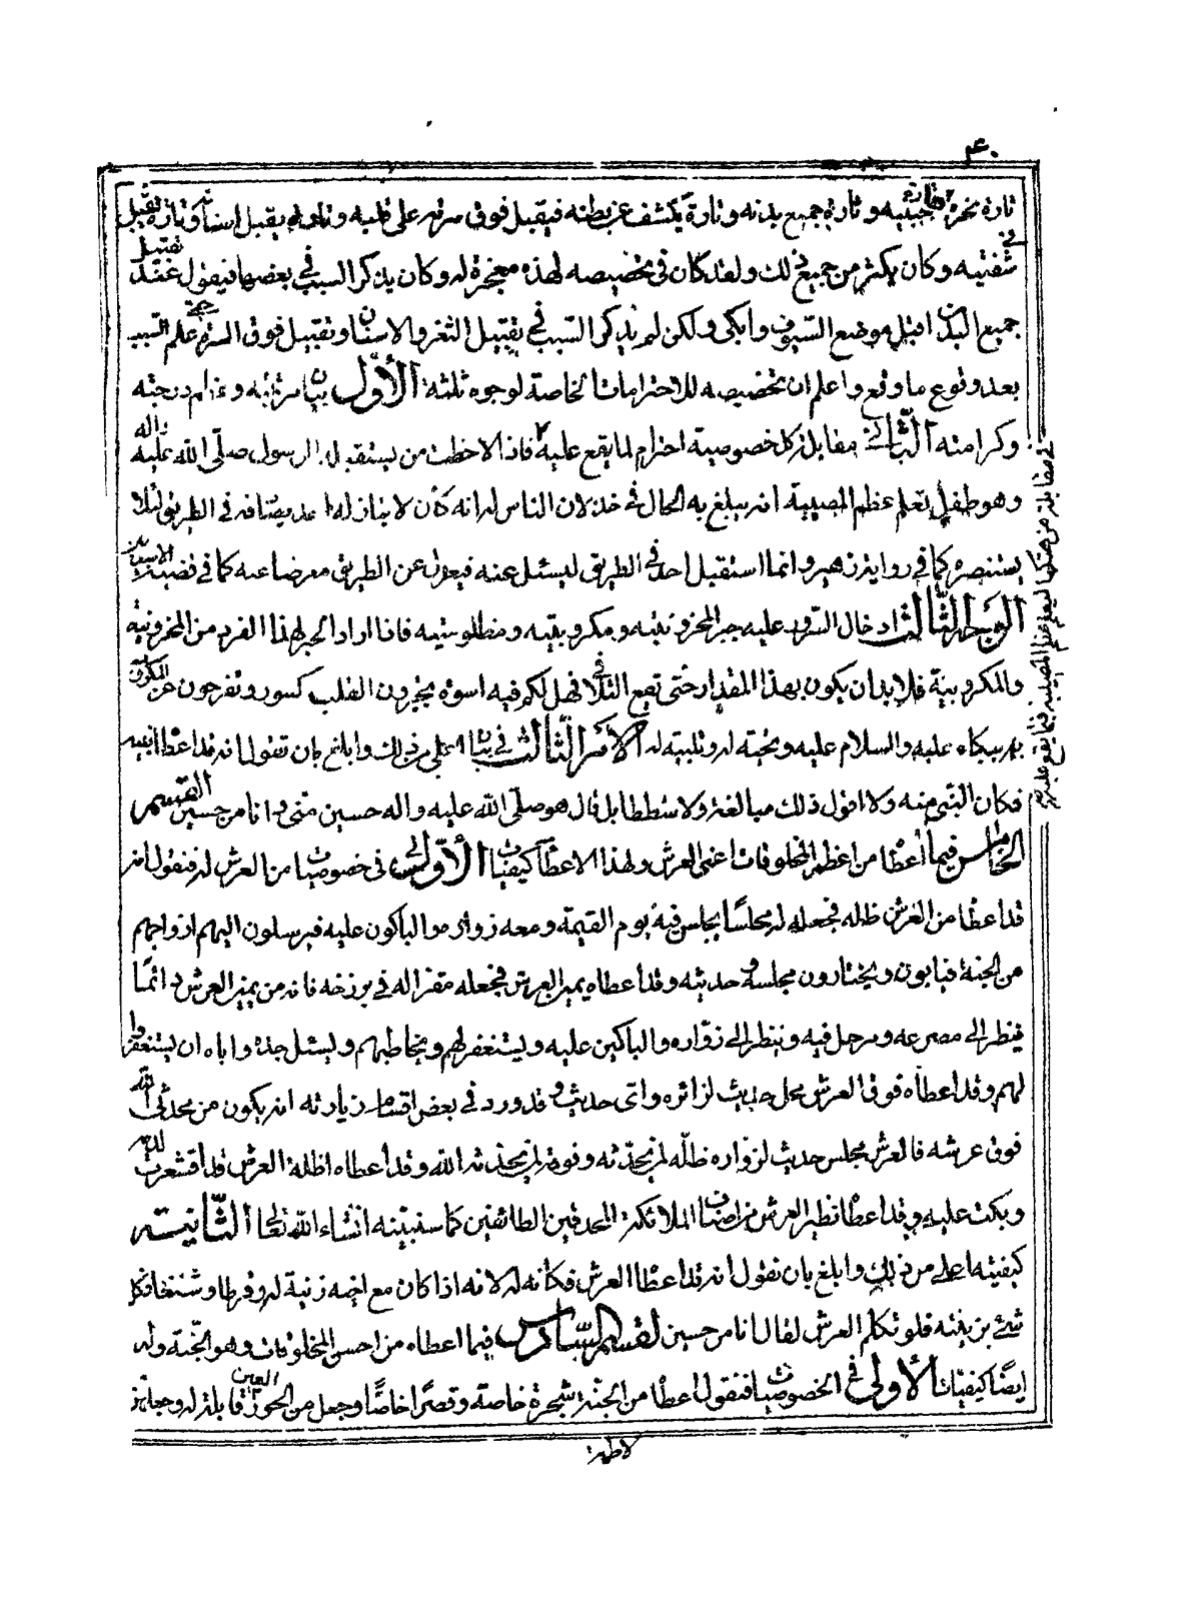 ۴۰
تارة نحره وتارة جبينه وتارة جميع بدنه وتارة يكشف عن بطنه فيقبل فوق سرته على قلبه وتارة يقبل اسنانه وتارة يقبل
شفتيه وكان يكثر من جميع ذلك ولقد كان في تخصيصه لهذه معجزة له وكان يذكر السبب في بعضها فيقول عند تقبيل
جميع البدن اقبل موضع السيوف وابكى ولكن لم يذكر السبب في تقبيل الثغر والاسنان وتقبيل فوق السرة حتى علم السبب
بعد وقوع ما وقع واعلم ان تخصيصه للاحترامات الخاصة لوجوه ثلثة الأول بيان مرتبته وعظم درجته
وكرامته الثاني مقابلة كل خصوصية احترام لما يقع عليه فاذا لاحظت من يستقبل الرسول صلى الله عليه واله
وهو طفل تعلم عظم المصيبة انه يبلغ به الحال في خذلان الناس له انه كان لا ينازله احد يصادفه في الطريق لئلا
يستنصره كما في رواية زهير وانما استقبل احد في الطريق ليسئل عنه فيعدل عن الطريق معرضا عنه كما في قضية الاسديين
الوجه الثالث ادخال السرور عليه جبر المحزونيته ومكروبيته ومظلوميته فاذا اراد الجبر لهذا الفرد من المحزونية
والمكروبية فلابد ان يكون بهذا المقدار حتى يقع التلافي فهل لكم فيه اسوة بجبرون القلب كسور وتفرجون عن المكروب
به ببكاء عليه والسلام عليه ومحبته له وتلبيته له الأمر الثالث في بيان اعلى من ذلك وابلغ بان تقول انه قد اعطاه نفسه
فكان النبي منه ولا اقول ذلك مبالغة ولا شططا بل قال هو صلى الله عليه واله حسين مني وانا من حسين القسم
الخامس فيما أعطاه من اعظم المخلوقات اعني العرش ولهذا الاعطاء كيفيات الأولى في خصوصيات من العرش له فنقول انه
قد اعطاه من العرش ظله فجعله له مجلسا يجلس فيه يوم القيمة ومعه زواره والباكون عليه فيرسلون اليهم ازواجهم
من الجنة فيابون ويختارون مجلسه وحديثه وقد اعطاه يمين العرش فجعله مقرا له في برزخه فانه من يمين العرش دائما
ينظر الى مصرعه ومن حل فيه وينظر الى زواره والباكين عليه ويستغفر لهم ويخاطبهم ويسئل جده واباه ان يستغفروا
لهم وقد اعطاه فوق العرش محل حديث لزائره واتى حديث وقد ورد في بعض اقسام زيارته انه يكون من محدثي الله
فوق عرشه فالعرش مجلس حديث لزواره ظله لمن يحدثه وفوقه لمن يحدثه الله وقد أعطاه اظلة العرش قد اقشعرت له
وبكت عليه وقد اعطاه نظير العرش من اصناف الملائكة المحدقين الطائفين كما سنبينه انشاء الله تعالى الثانية
كيفية اعلى من ذلك وابلغ بان نقول انه قد اعطاه العرش فكأنه له لانه اذا كان مع اخيه زينة له وقرطا وشنفا فكل
شئ بزينته فلو تكلم العرش لقال انا من حسين القسم السادس فيما اعطاه من احسن المخلوقات وهو الجنة وله
ايضا كيفيات الأولى في الخصوصيات فنقول اعطاه من الجنة شجرة خاصة وقصرا خاصا وجعل من الحور العين قابلة له وجعل
في مقابلة من هتكها ليعلم عظم المصيبة فيما يقع عليه